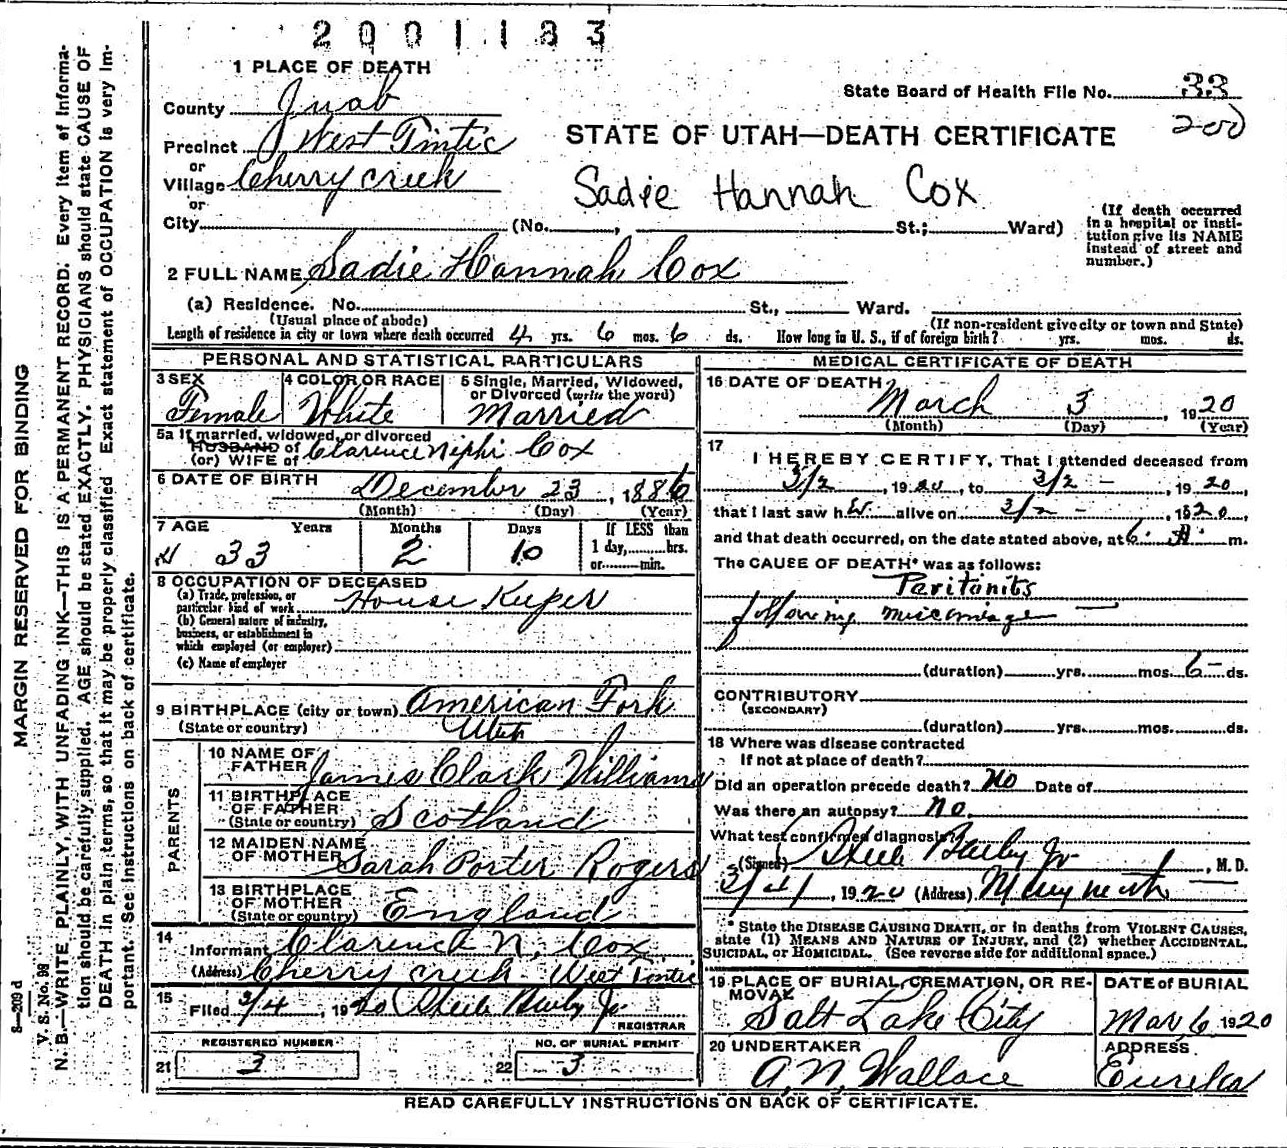 2001183
1 PLACE OF DEATH
County Juab
State Board of Health File No. 33
200
Precinct West Tintic
STATE OF UTAH—DEATH CERTIFICATE
or
Village Cherry creek
Sadie Hannah Cox
or
City (No. , St.; Ward)
(If death occurred
in a hospital or insti-
tution give its NAME
instead of street and
number.)
2 FULL NAME Sadie Hannah Cox
(a) Residence. No. St., Ward.
(Usual place of abode)
(If non-resident give city or town and State)
Length of residence in city or town where death occurred 4 yrs. 6 mos. 6 ds. How long in U. S., if of foreign birth? yrs. mos. ds.
PERSONAL AND STATISTICAL PARTICULARS
3 SEX
Female
4 COLOR OR RACE
White
5 Single, Married, Widowed,
or Divorced (write the word)
Married
5a If married, widowed, or divorced
HUSBAND of
(or) WIFE of Clarence Niphi Cox
6 DATE OF BIRTH December 23, 1886
(Month) (Day) (Year)
7 AGE
Years
33
Months
2
Days
10
If LESS than
1 day, hrs.
or min.
8 OCCUPATION OF DECEASED
(a) Trade, profession, or
particular kind of work House Keeper
(b) General nature of industry,
business, or establishment in
which employed (or employer)
(c) Name of employer
9 BIRTHPLACE (city or town) American Fork
(State or country) Utah
PARENTS
10 NAME OF
FATHER James Clark Williams
11 BIRTHPLACE
OF FATHER
(State or country) Scotland
12 MAIDEN NAME
OF MOTHER Sarah Porter Rogers
13 BIRTHPLACE
OF MOTHER
(State or country) England
14
Informant Clarence N. Cox
(Address) Cherry creek West Tintic
15
Filed 3/4, 1920 Steele Bailey Jr
REGISTRAR
REGISTERED NUMBER
21 3
NO. OF BURIAL PERMIT
22 3
MEDICAL CERTIFICATE OF DEATH
16 DATE OF DEATH
March 3, 1920
(Month) (Day) (Year)
17
I HEREBY CERTIFY, That I attended deceased from
3/2, 1920, to 3/2, 1920,
that I last saw her alive on 3/2, 1920,
and that death occurred, on the date stated above, at 6 A m.
The CAUSE OF DEATH* was as follows:
Paritonits
following miscarriage
(duration) yrs. mos. 6 ds.
CONTRIBUTORY
(SECONDARY)
(duration) yrs. mos. ds.
18 Where was disease contracted
If not at place of death?
Did an operation precede death? No Date of
Was there an autopsy? no.
What test confirmed diagnosis?
(Signed) Steele Bailey Jr, M. D.
3/4/, 1920 (Address)
* State the DISEASE CAUSING DEATH, or in deaths from VIOLENT CAUSES,
state (1) MEANS AND NATURE OF INJURY, and (2) whether ACCIDENTAL,
SUICIDAL, or HOMICIDAL. (See reverse side for additional space.)
19 PLACE OF BURIAL, CREMATION, OR RE-
MOVAL
Salt Lake City
DATE OF BURIAL
Mar 6 1920
20 UNDERTAKER
A. N. Wallace
ADDRESS
Eureka
READ CAREFULLY INSTRUCTIONS ON BACK OF CERTIFICATE.
MARGIN RESERVED FOR BINDING
S—209 d
V. S. No. 98
N. B.—WRITE PLAINLY, WITH UNFADING INK—THIS IS A PERMANENT RECORD. Every item of informa-
tion should be carefully supplied. AGE should be stated EXACTLY. PHYSICIANS should state CAUSE OF
DEATH in plain terms, so that it may be properly classified. Exact statement of OCCUPATION is very im-
portant. See instructions on back of certificate.